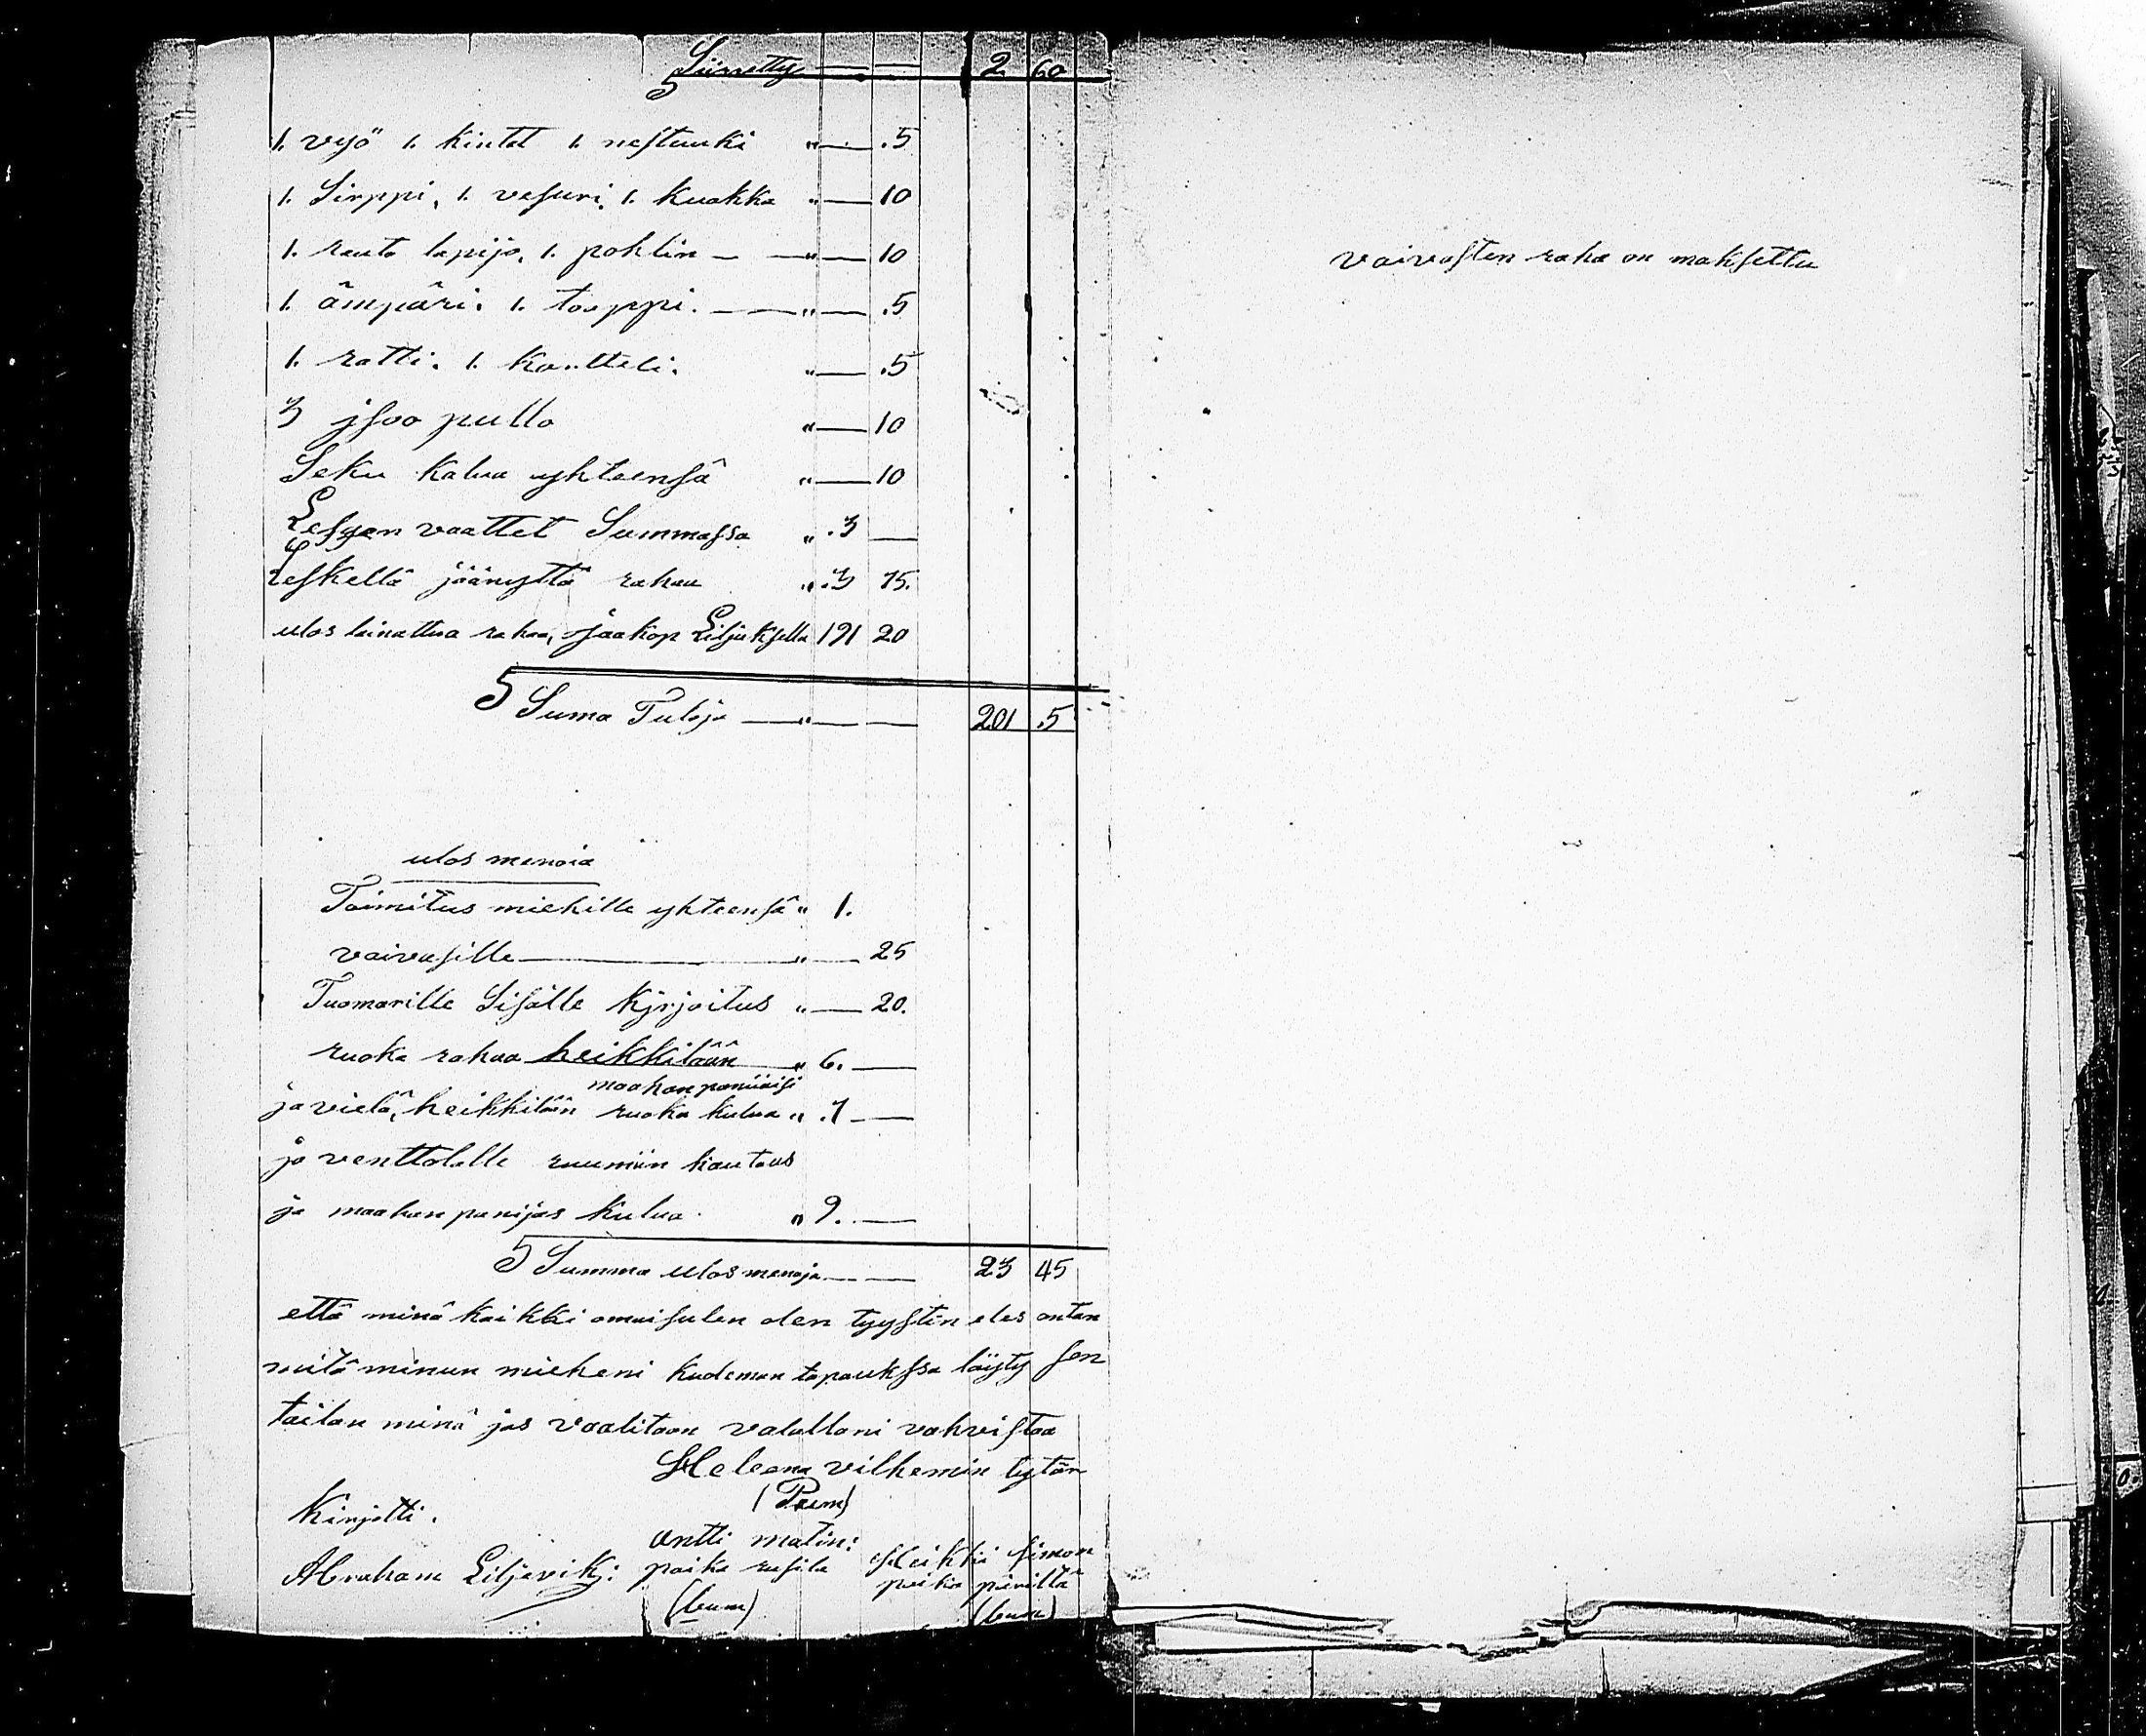 Siirretty — — 2 60
1. vyö 1. kintat 1. nestuuki " — . 5
1. Sirppi, 1. vesuri, 1. kuokka " — 10
1. rauta lapijo, 1. pohtin — — " — 10
1. ämpäri. 1. toppi. — — " — . 5
1. ratti. 1. kantteli. " — . 5
3 jsoo pullo " — 10
Seku kalua yhteensä " — 10
Lesgen vaattet Summassa " . 3 —
Leskellä jäänyttä rahaa " . 3 75.
ulos lainattua rahaa, jaakop Liljuksella 191 20
S Suma Tuloja — " — — 201 . 5
ulos menoia
Toimitus miehille yhteensä " 1.
vaivasille — " — 25
Tuomarille Sisälle kjrjoitus " — 20.
ruoka rahaa heikkilään " 6. —
maahanpaniaisi
ja vielä, heikkilän ruoka kulua " . 7 —
ja venttolalle ruumiin kautaus
ja maahan panijas kulua " 9. —
S Summa ulos menoja — — 23 45
että minä kaikki omaisulen olen tyystin eles antan
mitä minun mieheni kuoleman tapauksssa löyty sen
tailan minä jos vaalitaan valallani vahvistaa
Heleena vilhemin tytär
(Pum)
Kirjotti.
Abraham Liljevik:
antti matin:
poika rusila
(bum)
Heikki simon
poika pirilä
(bum)
vaivasten raha on maksettu